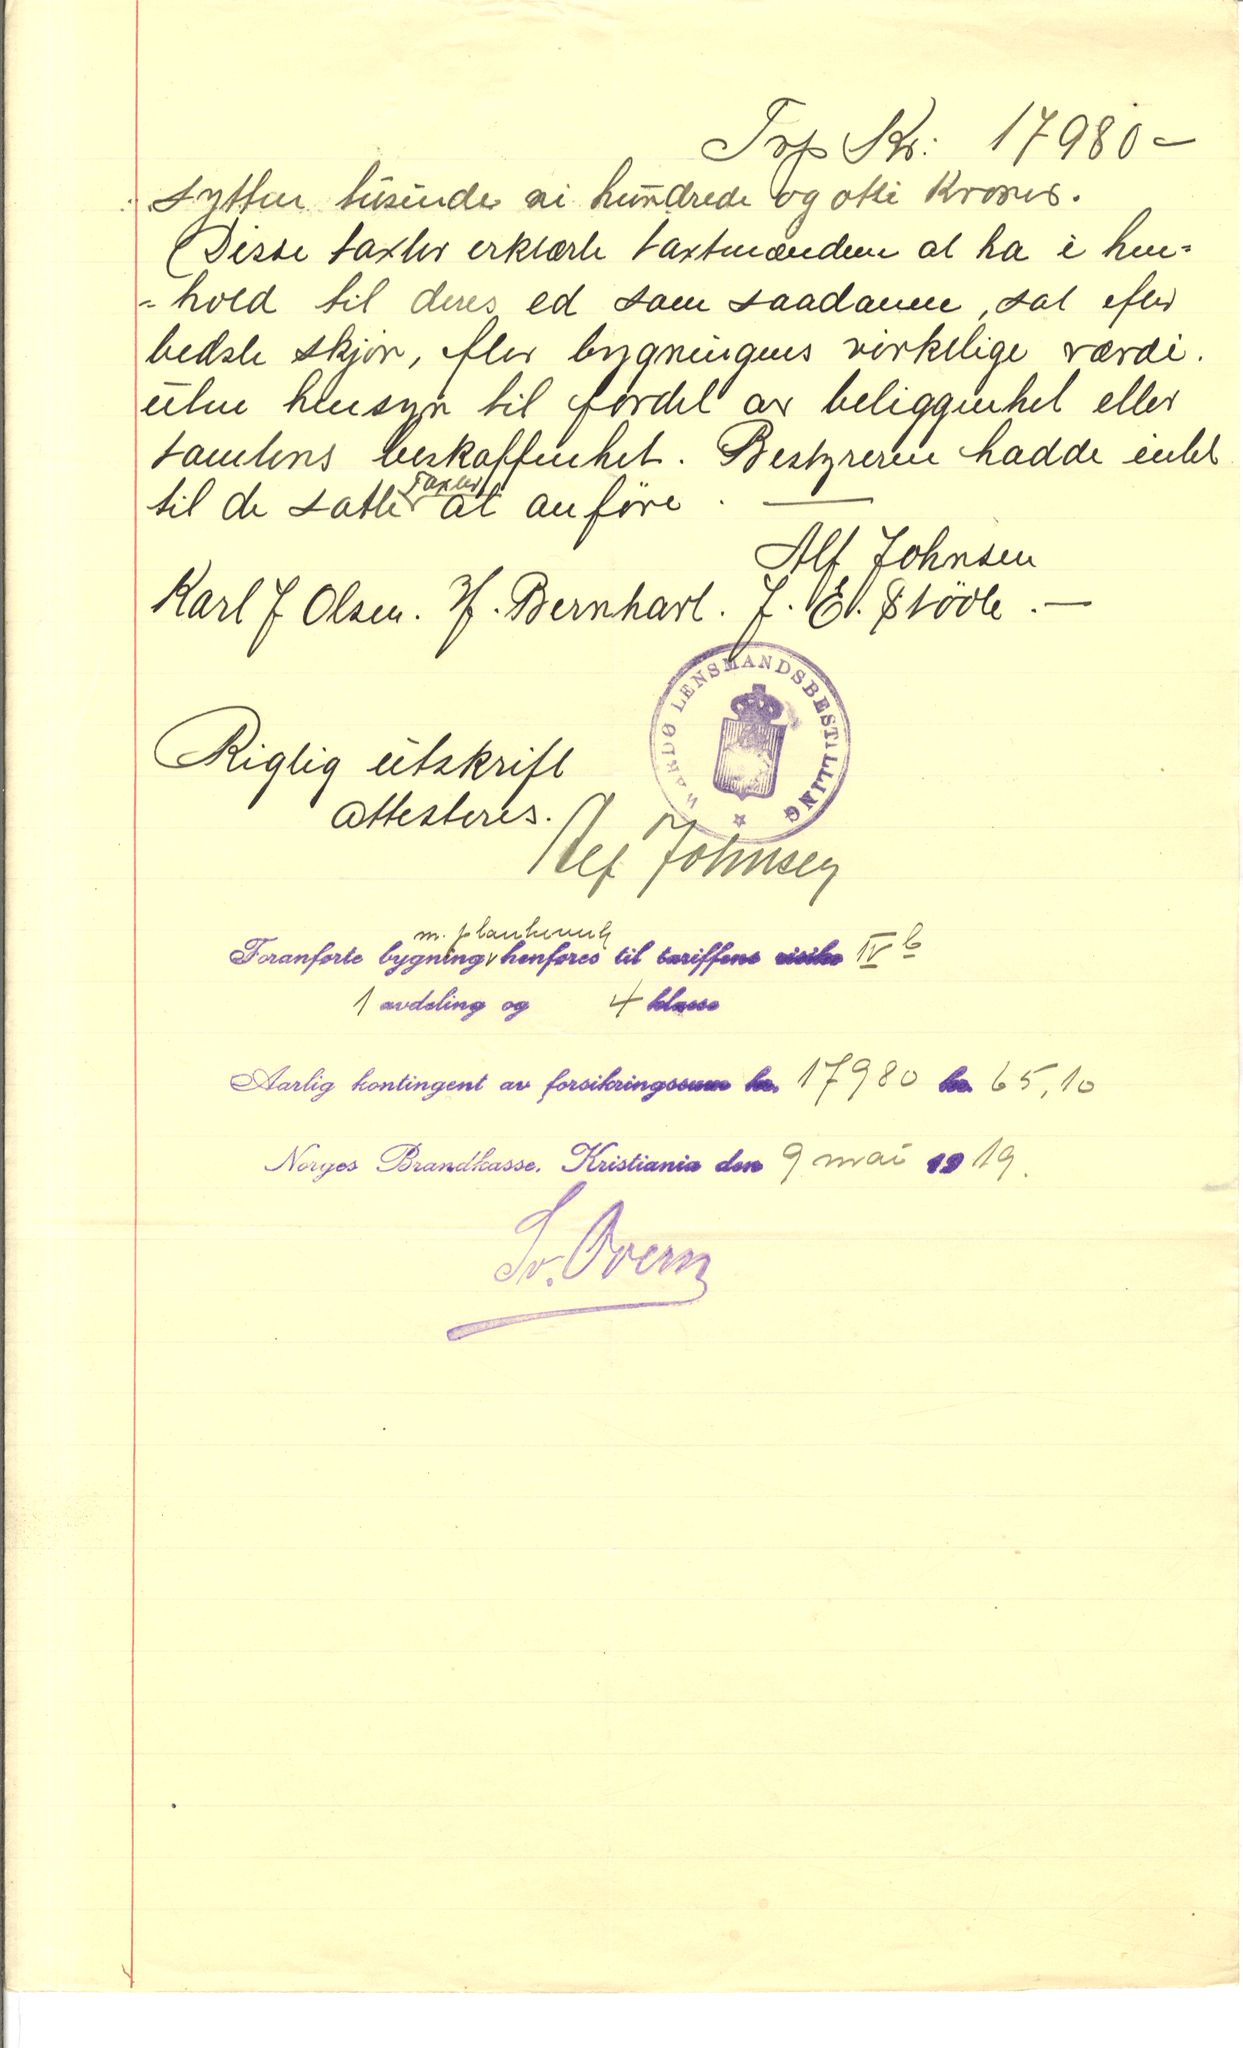 Trp Kr: 17980 –
sytten tusinde ni hundrede og otti Kroner.
Disse taxter erklærte taxtmændene at ha i hen=
=hold til deres ed som saadanne, sat efter
bedste skjøn, efter bygningens virkelige værdi.
uten hensyn til fordel av beliggenhet eller
tomtens beskaffenhet. Bestyreren hadde intet
til de satte taxter at anføre. —
Alf Johnsen
Karl J Olsen. H. Bernhart. J. E. Stövle. —
WARDØ LENSMANDSBESTILLING
Rigtig utskrift
attesteres.
Alf Johnsen
m. plankeverk
Foranførte bygning henføres til tariffens risiko IV b
1 avdeling og 4 klasse
Aarlig kontingent av forsikringssum kr. 17980 kr. 65,10
Norges Brandkasse. Kristiania den 9 mai 1919.
Sv. Overn